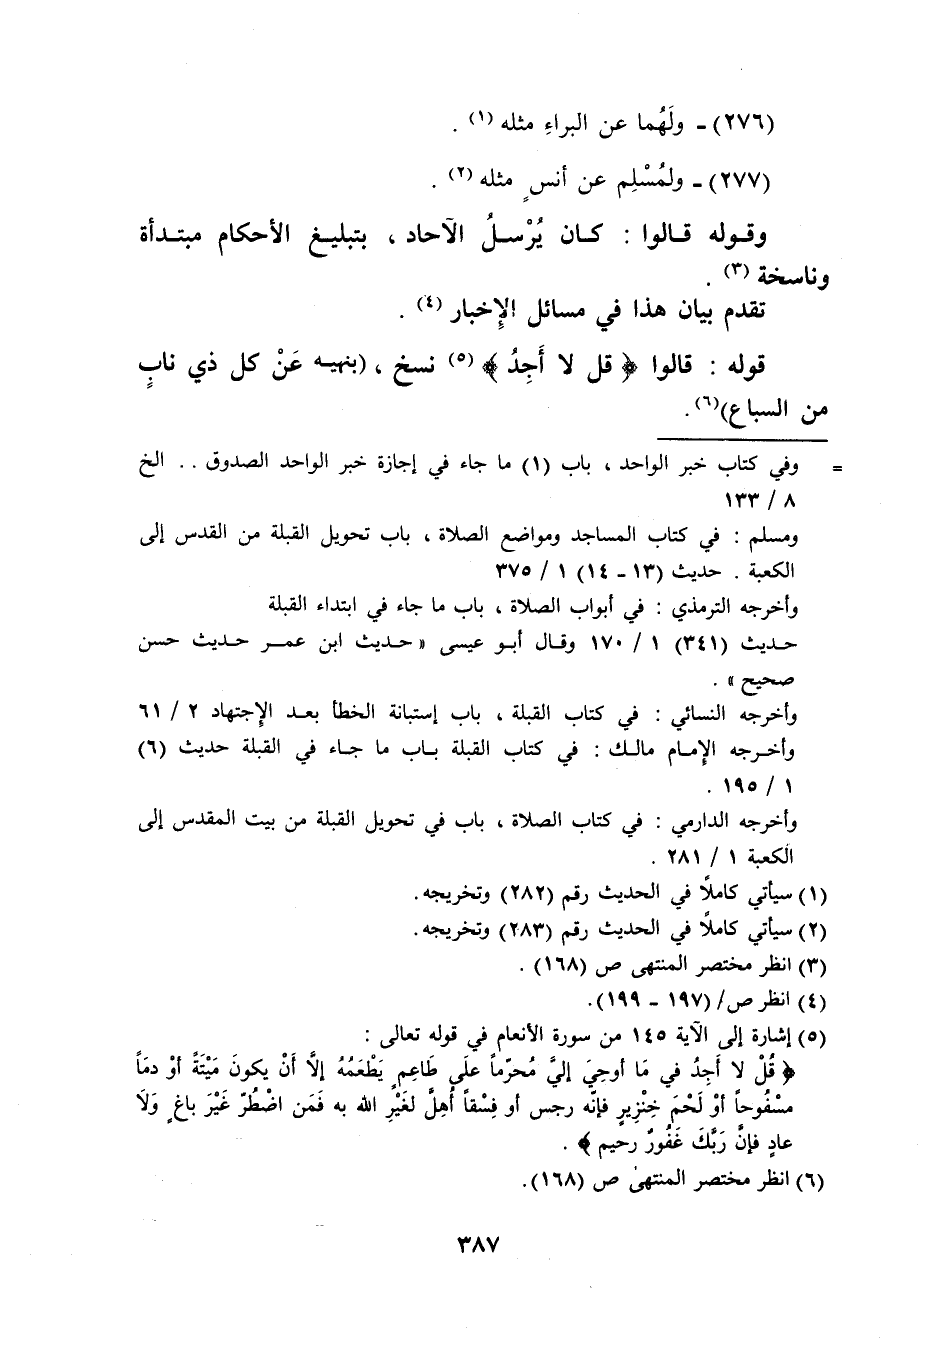 (٢٧٦) - ولَهُما عن البراءِ مثله (١) .
(٢٧٧) - ولمُسْلِم عن أنسٍ مثله (٢) .
وقوله قالوا : كان يُرْسلُ الآحاد ، بتبليغ الأحكام مبتدأة
وناسخة (٣) .
تقدم بيان هذا في مسائل الإِخبار (٤) .
قوله : قالوا ﴿ قل لا أَجِدُ ﴾ (٥) نسخ ، (بنهيه عَنْ كل ذي نابٍ
من السباع)(٦).
= وفي كتاب خبر الواحد ، باب (١) ما جاء في إجازة خبر الواحد الصدوق . . الخ
٨ / ١٣٣
ومسلم : في كتاب المساجد ومواضع الصلاة ، باب تحويل القبلة من القدس إلى
الكعبة . حديث (١٣ - ١٤) ١ / ٣٧٥
وأخرجه الترمذي : في أبواب الصلاة ، باب ما جاء في ابتداء القبلة
حديث (٣٤١) ١ / ١٧٠ وقال أبو عيسى « حديث ابن عمر حديث حسن
صحيح » .
وأخرجه النسائي : في كتاب القبلة ، باب إستبانة الخطأ بعد الإجتهاد ٢ / ٦١
وأخرجه الإمام مالك : في كتاب القبلة باب ما جاء في القبلة حديث (٦)
١ / ١٩٥ .
وأخرجه الدارمي : في كتاب الصلاة ، باب في تحويل القبلة من بيت المقدس إلى
الكعبة ١ / ٢٨١ .
(١) سيأتي كاملاً في الحديث رقم (٢٨٢) وتخريجه.
(٢) سيأتي كاملاً في الحديث رقم (٢٨٣) وتخريجه.
(٣) انظر مختصر المنتهى ص (١٦٨) .
(٤) انظر ص/ (١٩٧ - ١٩٩).
(٥) إشارة إلى الآية ١٤٥ من سورة الأنعام في قوله تعالى :
﴿ قُلْ لا أَجِدُ في مَا أوحِيَ إليَّ مُحرّماً علَى طَاعِمٍ يَطْعَمُهُ إلاَّ أَنْ يكونَ مَيْتَةً أوْ دمَاً
مسْفُوحاً أوْ لَحْمَ خِنْزِيرٍ فإنّه رجس أو فِسْقاً أُهِلَّ لغَيْرِ الله به فَمَن اضْطُرّ غَيْرَ باغٍ وَلاَ
عادٍ فإنَّ رَبَّكَ غَفُورٌ رحيم ﴾ .
(٦) انظر مختصر المنتهى ص (١٦٨).
٣٨٧